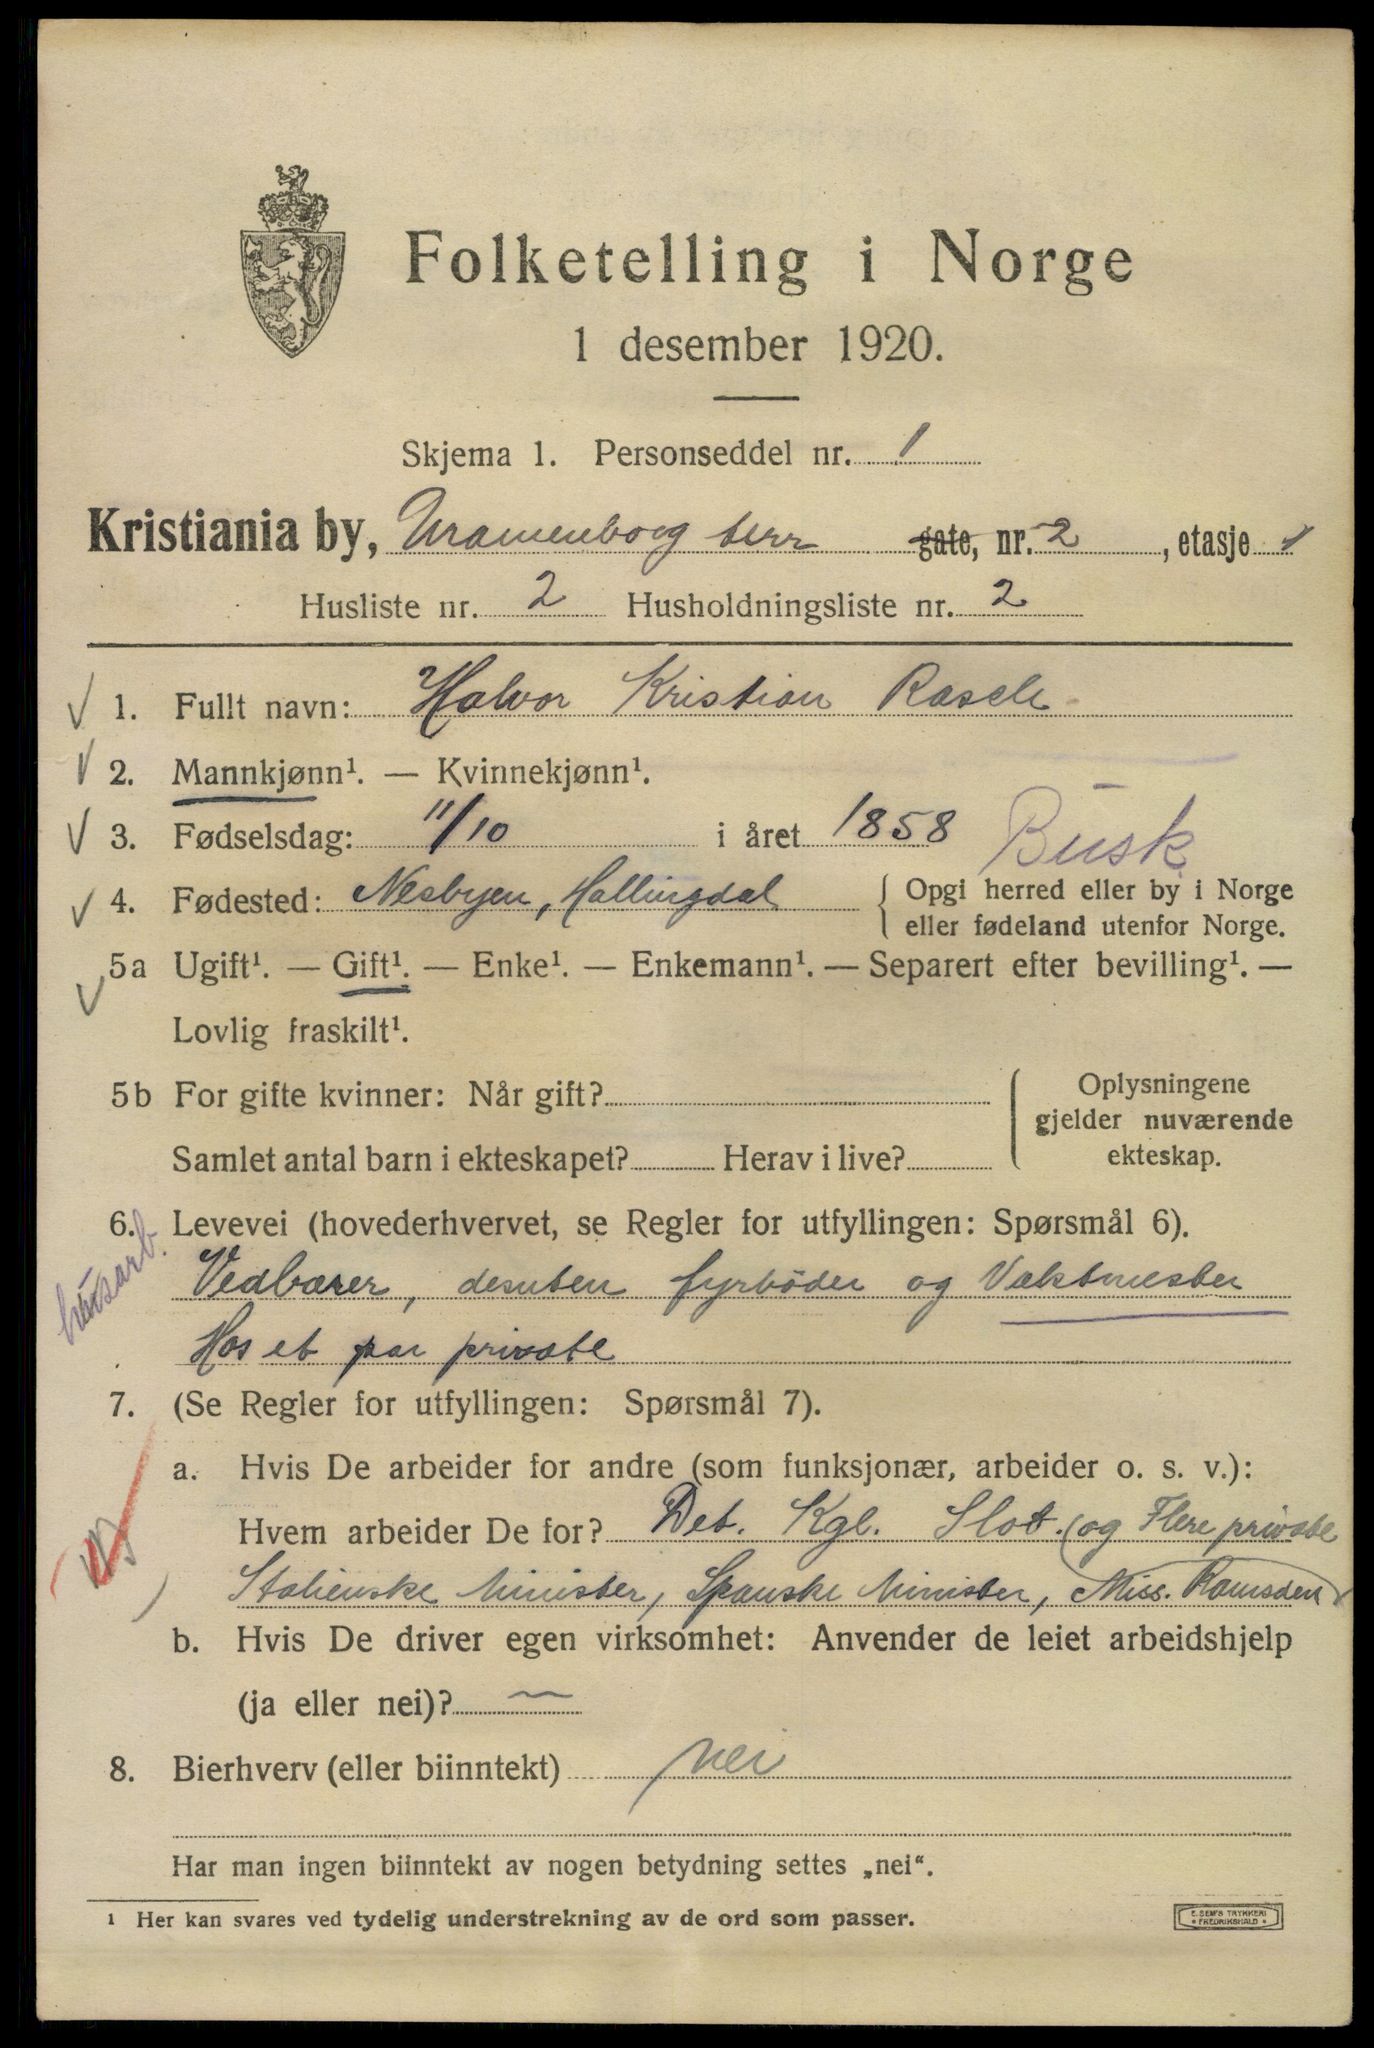 Folketelling i Norge
1 desember 1920.
Skjema 1. Personseddel nr. 1
Kristiania by, Uranienborg terr gate, nr. 2, etasje 1
Husliste nr. 2 Husholdningsliste nr. 2
1. Fullt navn: Halvor Kristian Rasch
2. Mannkjønn¹. — Kvinnekjønn¹.
3. Fødselsdag: 11/10 i året 1858
Busk
4. Fødested: Nesbyen, Hallingdal { Opgi herred eller by i Norge
eller fødeland utenfor Norge.
5a Ugift¹. — Gift¹. — Enke¹. — Enkemann¹. — Separert efter bevilling¹. —
Lovlig fraskilt¹.
5b For gifte kvinner: Når gift? { Oplysningene
gjelder nuværende
Samlet antal barn i ekteskapet? Herav i live? ekteskap.
6. Levevei (hovederhvervet, se Regler for utfyllingen: Spørsmål 6).
husarb.
Vedbærer, desuten fyrbøder og Vaktmester
Hos et par private
7. (Se Regler for utfyllingen: Spørsmål 7).
a. Hvis De arbeider for andre (som funksjonær, arbeider o. s. v.):
Hvem arbeider De for? Det. Kgl. Slot. (og Flere private
Italienske Minister, Spanske Minister, Miss. Ramsden
b. Hvis De driver egen virksomhet: Anvender de leiet arbeidshjelp
(ja eller nei)? —
8. Bierhverv (eller biinntekt) nei
Har man ingen biinntekt av nogen betydning settes „nei“.
¹ Her kan svares ved tydelig understrekning av de ord som passer.
E. SEM'S TRYKKERI
• FREDRIKSHALD •